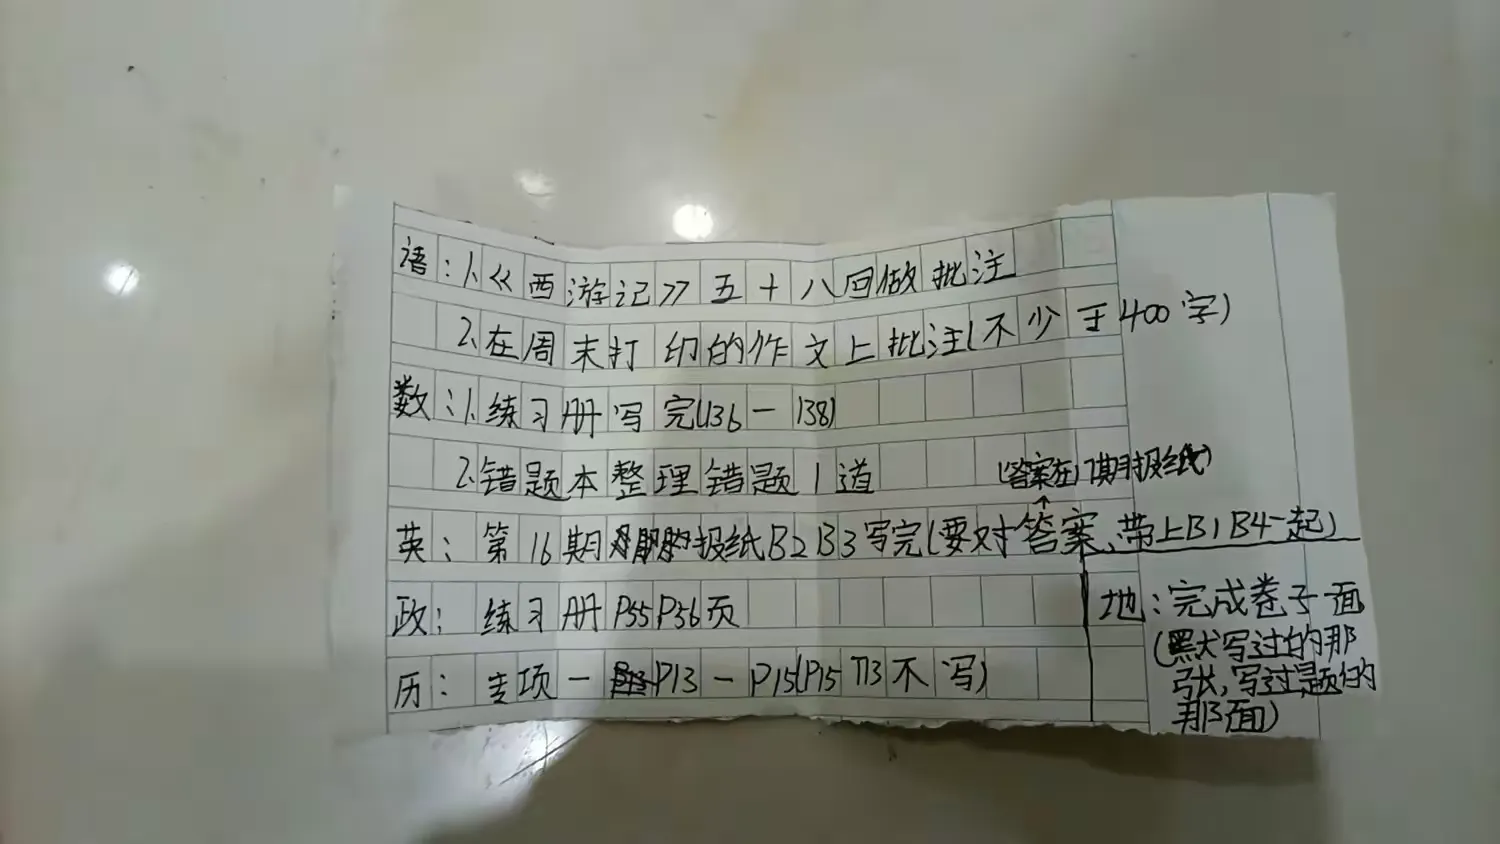 语:1、《西游记》五十八回做批注
2、在周末打印的作文上批注(不少于400字)
数:1、练习册写完(136-138)
2、错题本整理错题1道
(答案在17期报纸)
英:第16期报纸B2B3写完(要对答案、带上B1B4一起)
政:练习册P55P56页
历:专项一P13-P15(P15 T13不写)
地:完成卷子一面
(默写过的那
张,写过题的
那面)